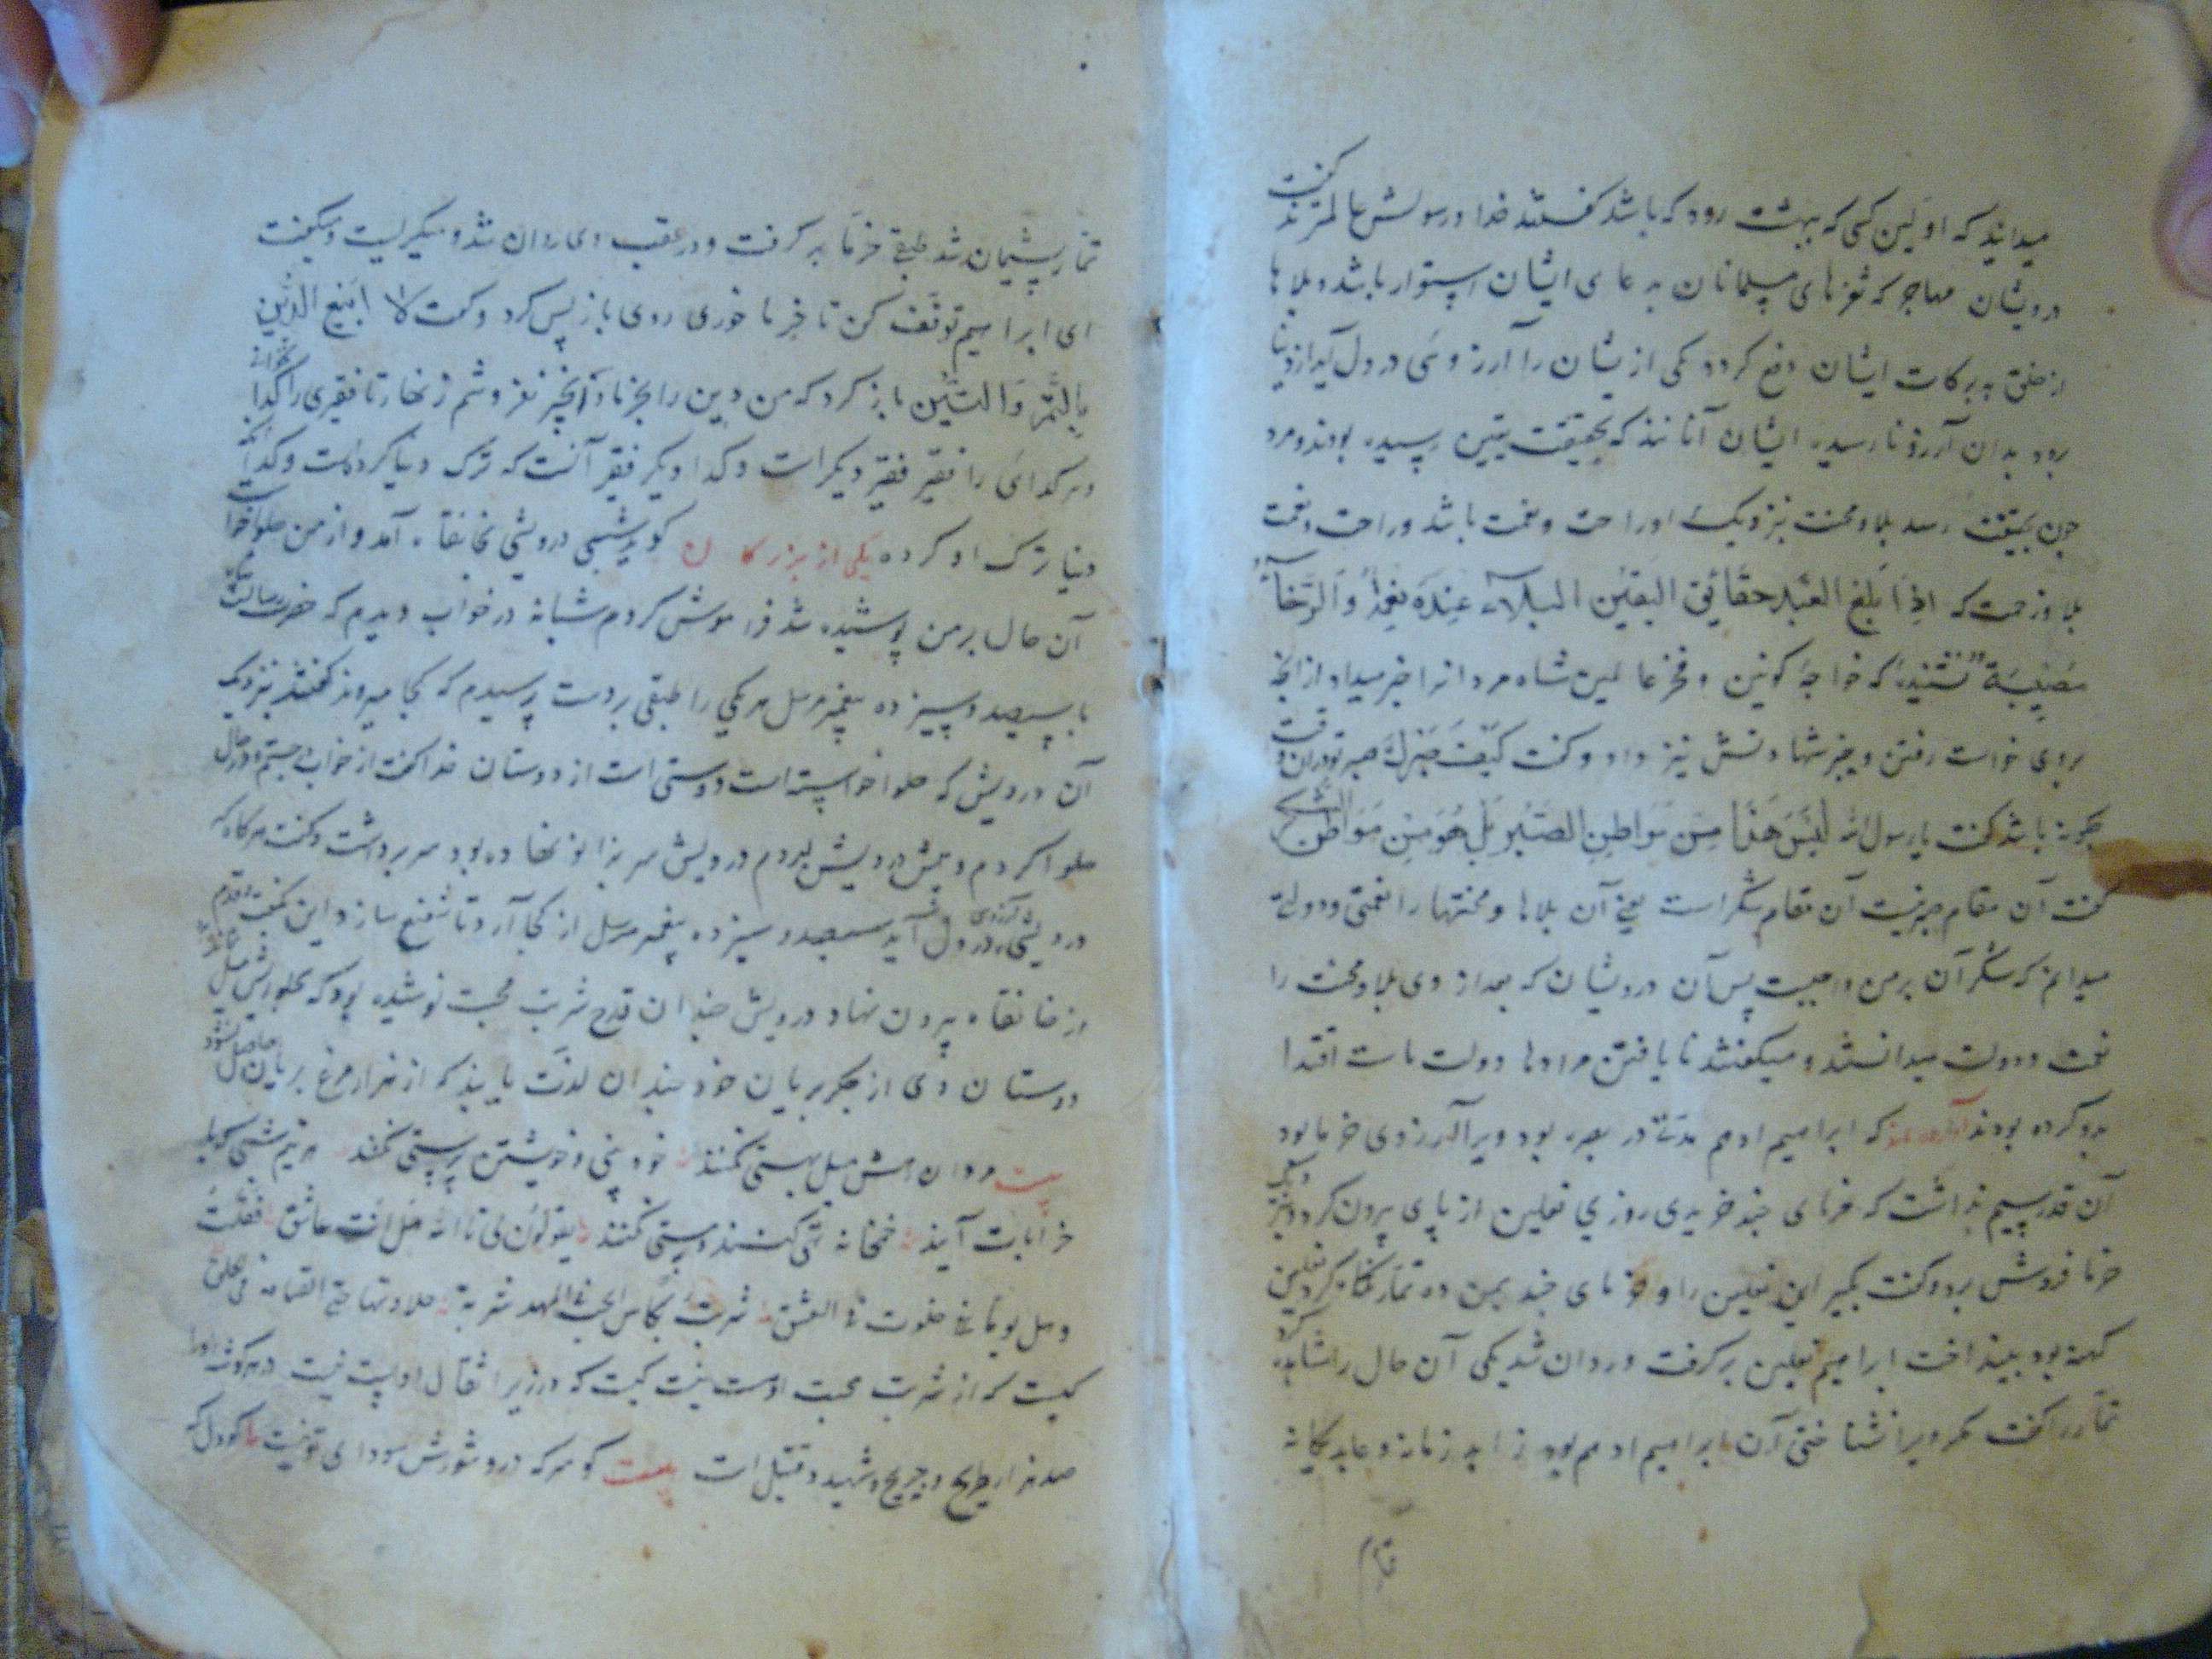 میدانید که اولین کسی که ببهشت رود که باشد گفتند خدا و رسولش عالم‌ترند گفت
درویشان مهاجر که ثغرهای مسلمانان بدعای ایشان استوار باشد و بلاها
از خلق ببرکات ایشان دفع گردد یکی ازیشان را آرزوئی در دل آید از دنیا
برود بدان آرزو نارسیده ایشان آنانند که بحقیقت یقین رسیده بودند و مرد
چون بحقیقت رسد بلا و محنت بنزدیک او راحت و نعمت باشد و راحت و نعمت
بلا و زحمت که اِذَا بَلَغَ العَبْدُ حَقَائِقَ الیَقِینِ البَلَاءُ عِنْدَهُ نِعْمَةٌ وَالرَّخَاءُ
مُصِیبَةٌ نشنیدهٔ که خواجه کونین و فخر عالمین شاه مردانرا خبر میداد از آنچه
بروی خواست رفتن و خبر شهادتش نیز داد و گفت کَیْفَ صَبْرُكَ صبر تو در آن وقت
چگونه باشد گفت یا رسول الله لَیْسَ هَذَا مِنْ مَوَاطِنِ الصَّبْرِ بَلْ هُوَ مِنْ مَوَاطِنِ الشُّکْرِ
گفت آن مقام صبر نیست آن مقام شکر است یعنی آن بلاها و محنتها را نعمتی و دولتی
میدانم که شکر آن بر من واجبست پس آن درویشان که بعد از وی بلا و محنت را
نعمت و دولت میدانستند و میگفتند نایافتن مرادها دولت ماست اقتدا
بدو کرده بودند آورده‌اند که ابراهیم ادهم مدتی در بصره بود ویرا آرزوی خرما بود
آن قدر سیم نداشت که خرمای چند خریدی روزی نعلین از پای بیرون کرد و نزدیک
خرما فروش برد و گفت بگیر این نعلین را و خرمای چند بمن ده تمار نگاه کرد نعلین
کهنه بود بینداخت ابراهیم نعلین برگرفت و روان شد یکی آن حال را مشاهده کرد
تمار را گفت مگر ویرا نشناختی آن ابراهیم ادهم بود زاهد زمانه و عابد یگانه
تمار
تمار پشیمان شد طبقی خرما برگرفت و در عقب وی روان شد و میگریست و میگفت
ای ابراهیم توقف کن تا خرما خوری روی باز پس کرد و گفت لَا اَبِیعُ الدِّینَ
بِالتَّمْرِ وَالتِّینِ باز گرد که من دین را بخرما و انجیر نفروشم زنهار تا فقیری را گدا نخوانی
و هر گدائی را فقیر فقیر دیگر است و گدا دیگر فقیر آنست که ترک دنیا کرده است و گدا آنکه
دنیا ترک او کرده یکی از بزرگان گوید شبی درویشی بخانقاه آمد و از من حلوا خواست
آن حال بر من پوشیده شد فراموش کردم شبانه در خواب دیدم که حضرت رسالت پناه
با سیصد و سیزده پیغمبر مرسل هر یکی را طبقی بر دست پرسیدم که کجا میروند گفتند بنزدیک
آن درویش که حلوا خواسته است دوستی است از دوستان خدا گفت از خواب جستم و در حال
حلوا کردم و پیش درویش بردم درویش سر بزانو نهاده بود سر برداشت و گفت هر گاه که
درویشی را آرزوی در دل آید سیصد و سیزده پیغمبر مرسل از کجا آرد تا شفیع سازد این گفت و قدم
از خانقاه بیرون نهاد درویش چندان قدح شربت محبت نوشیده بود که بحلواش میل
دوستان وی از جگر بریان خود چندان لذت یابند که از هزار مرغ بریان حاصل نشود
بیت مردان رهش میل بهستی نکنند خود بینی و خویشتن پرستی نکنند
خرابات آیند خمخانه تهی کنند و مستی نکنند یقولون لی تالله هل انت عاشق فقلت
و هل یوما خلوت من العشق شربت بکاس الحب فی المهد شربة حلاوتها حتی القیامة فی حلقی
کیست که از شربت محبت او مست نیست کیست که در زیر اثقال او پست نیست در هر گوشه او را
صد هزار طریح و جریح و شهید و قتیل است بیت کو سر که درو شورش سودای تو نیست یا کو دل که